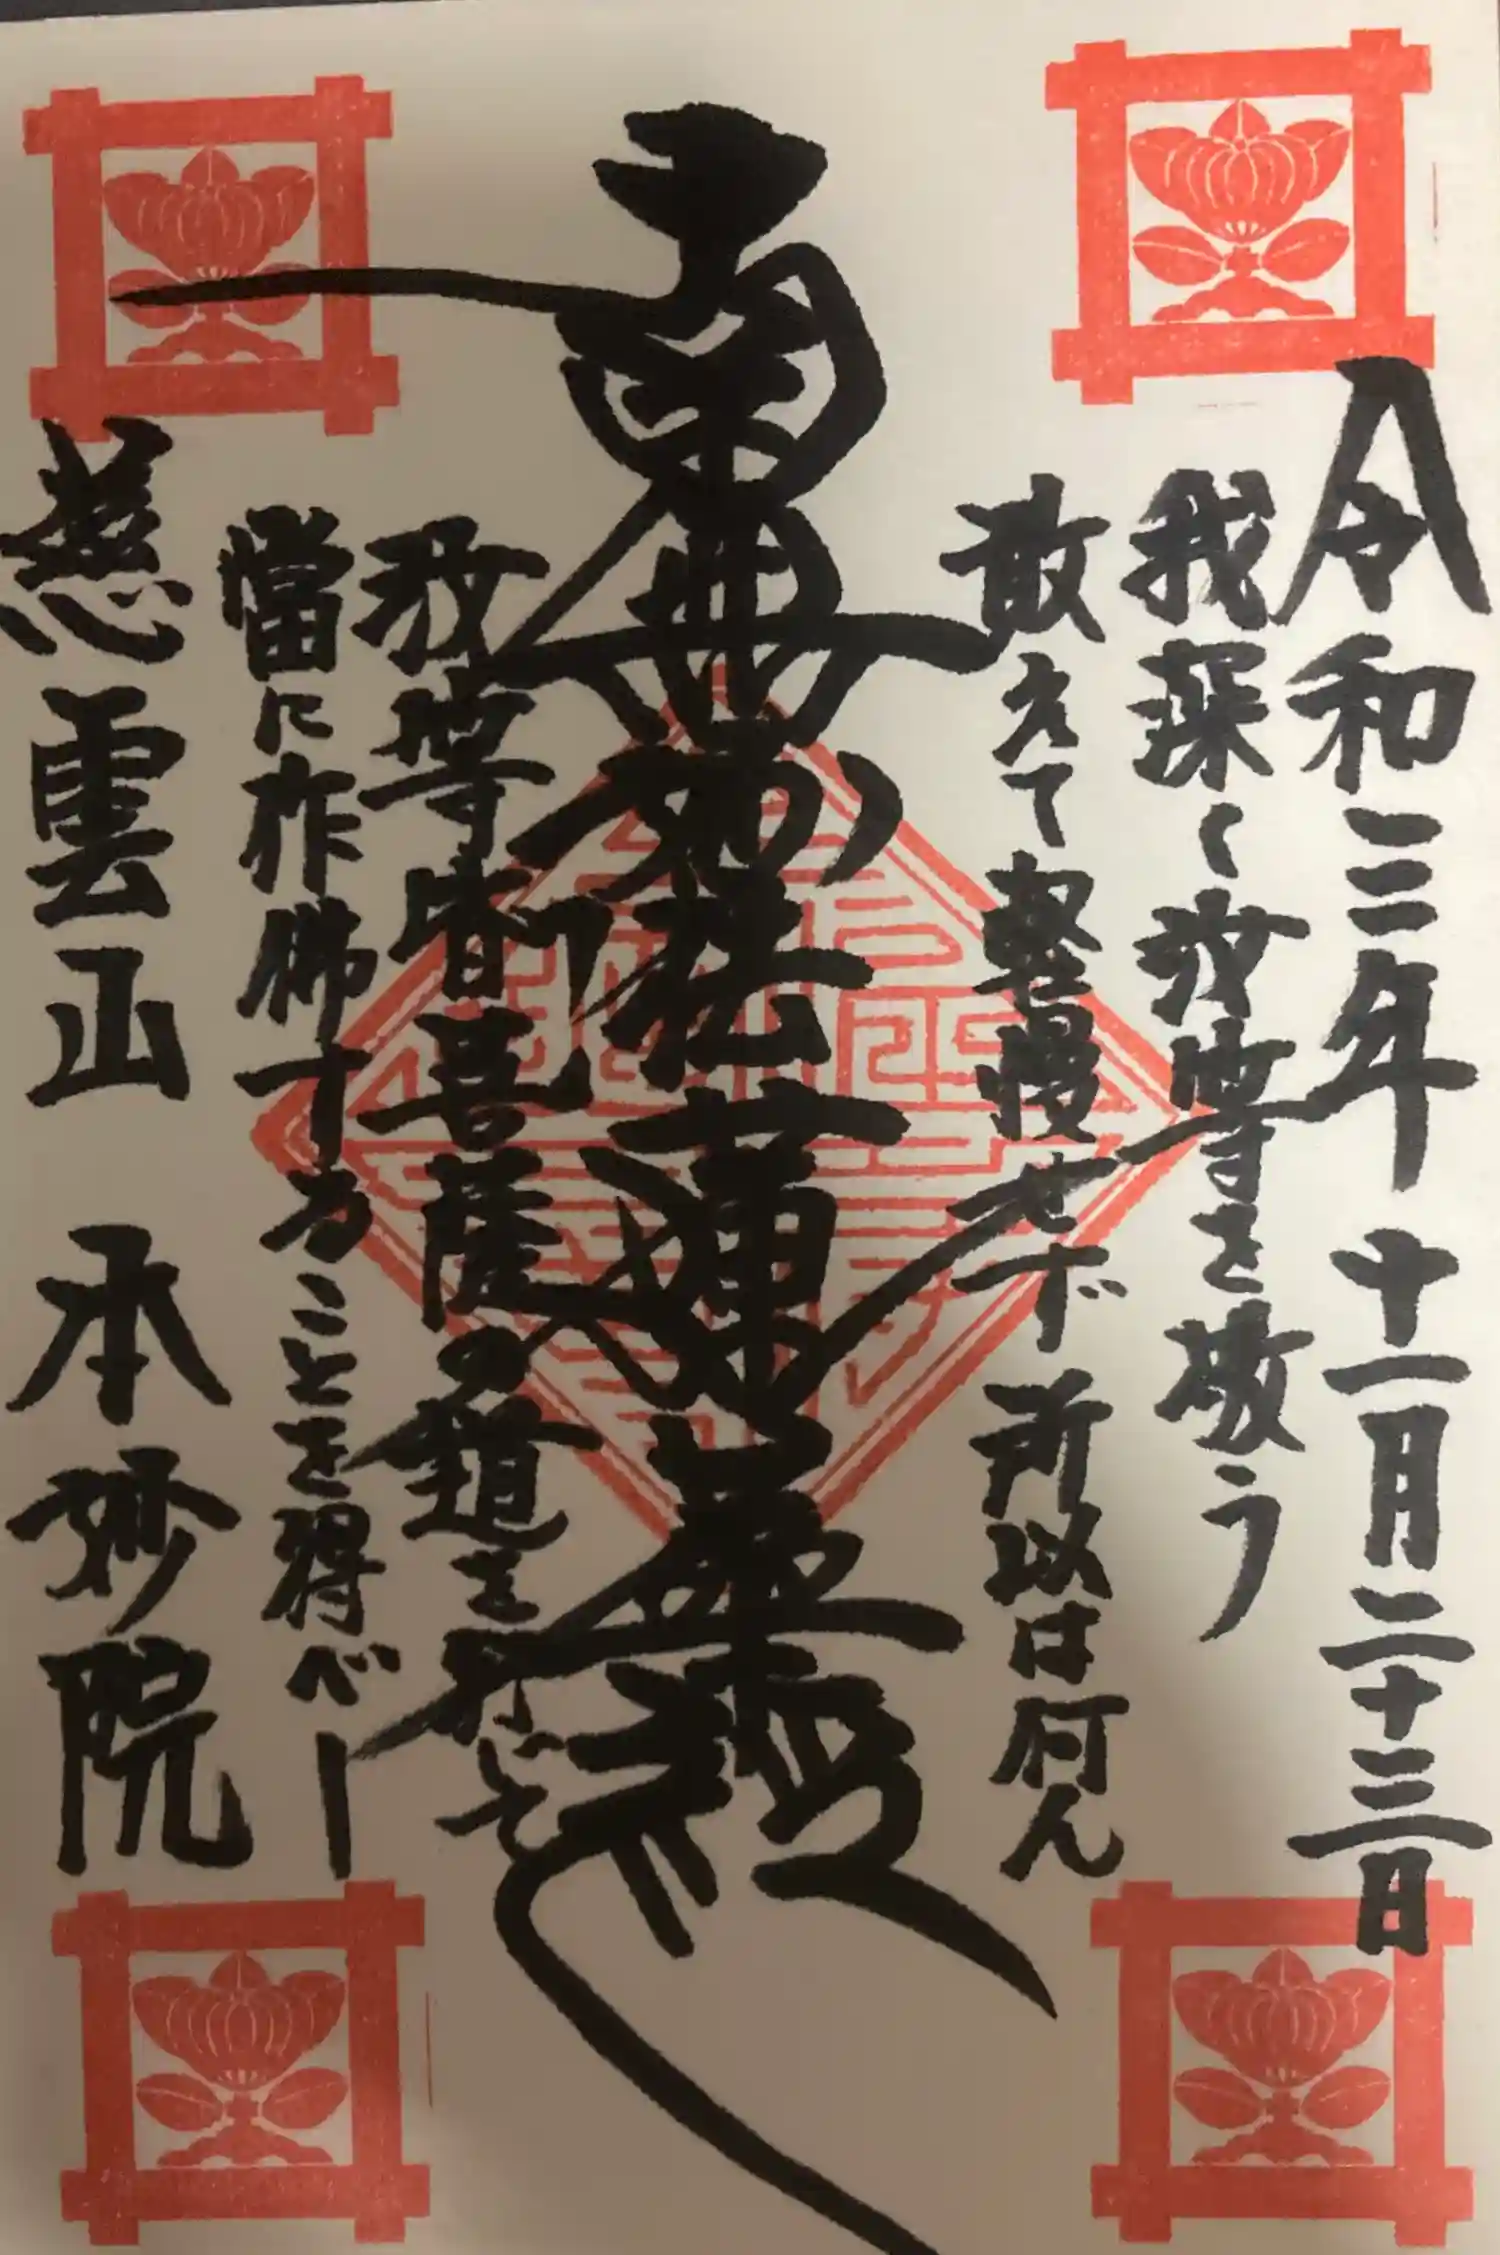 令和三年十一月二十三日
我深く汝等を敬う
敢えて軽慢せず所以は何ん
南無妙法蓮華経
汝等皆菩薩の道を行じて
當に作佛することを得べし
慈雲山 本妙院